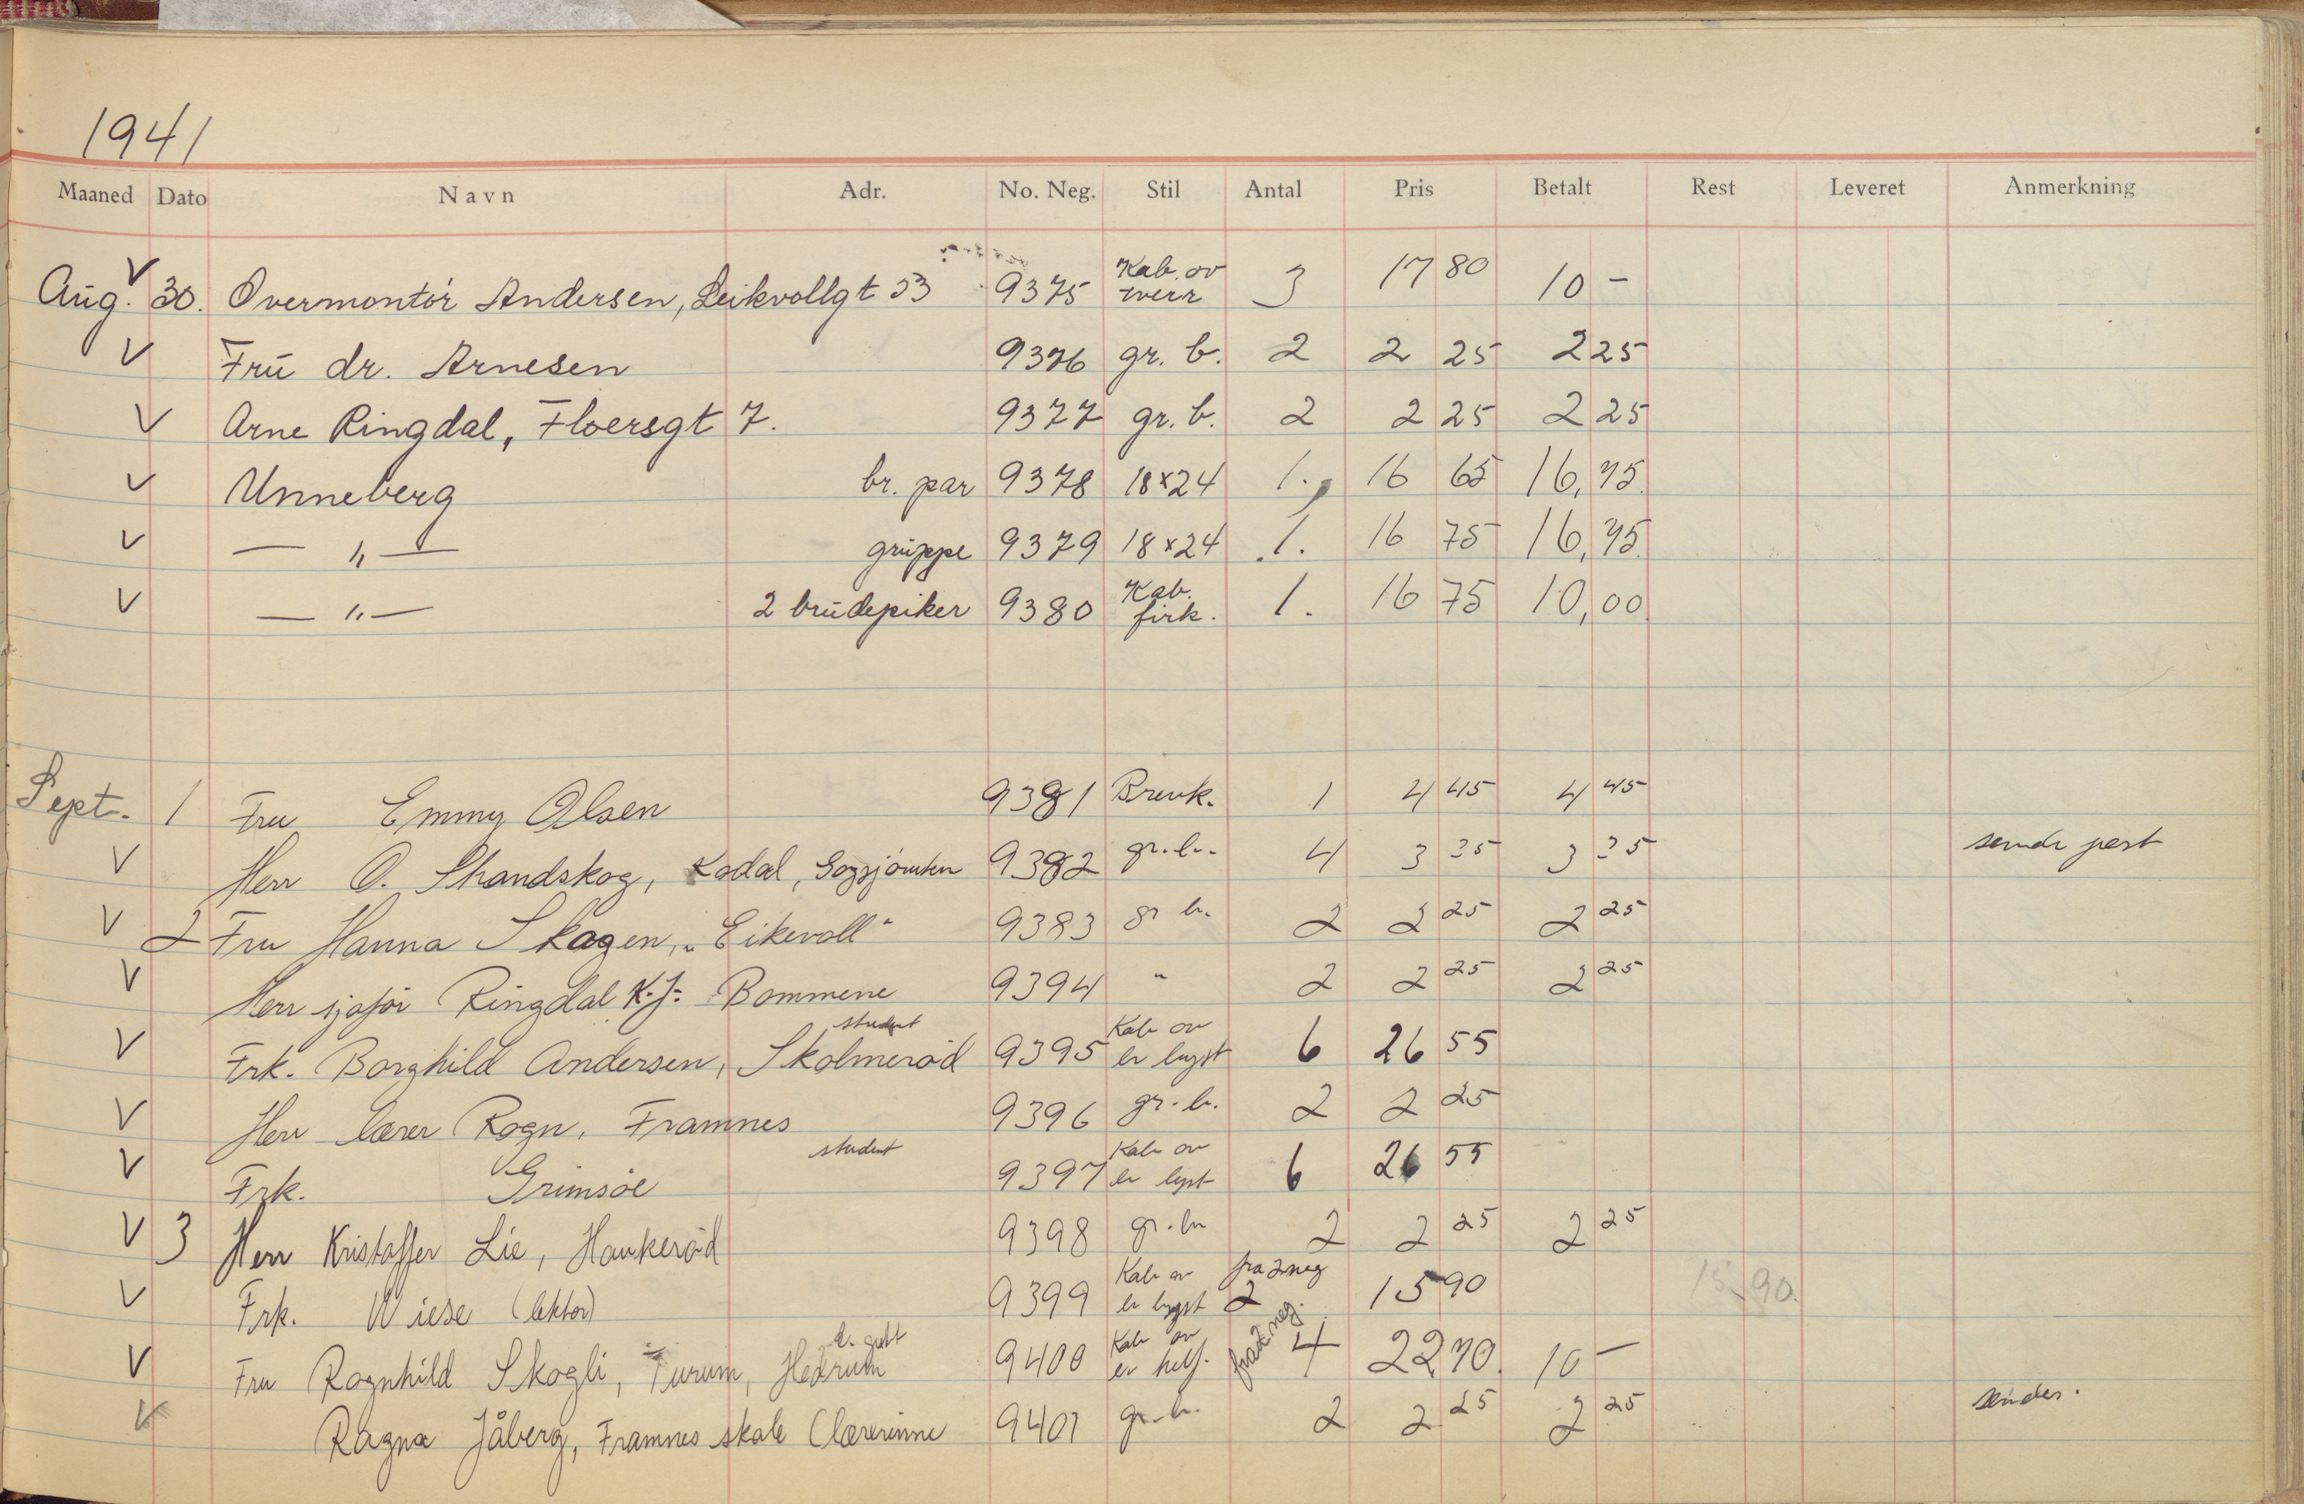 1941
Maaned Dato Navn Adr. No. Neg. Stil Antal Pris Betalt Rest Leveret Anmerkning
Aug. V 30. Overmontör Andersen, Leikvollgt 33 9375 Kab. ov 3 17 80 10 –
V Frū dr. Arnesen 9376 gr. b. 2 2 25 2 25
V Arne Ringdal, Floersgt 7. 9377 gr. b. 2 2 25 2 25
V Unneberg br. par 9378 18x24 1. 16 65 16,75
V — „ — grūppe 9379 18x24 1. 16 75 16,75
V — „ — 2 brūdepiker 9380 Kab. firk. 1. 16 75 10,00
Sept. 1 Fru Emmy Olsen 9381 Brevk. 1 4 45 4 45
V Herr O. Strandskog, Kodal, 9382 gr. b. 4 3 35 3 35 sendr post
V 2 Fru Hanna Skagen, „Eikevoll" 9383 gr b. 2 2 25 2 25
V Herr sjafør Ringdal K.J. Bommene 9394 " 2 2 25 2 25
V Frk. Borghild Andersen, Skolmerød student 9395 Kab ov er lyst 6 26 55
V Herr lærer Rogn, Framnes 9396 gr. b. 2 2 25
V Frk. Grimsøe student 9397 Kab ov er lyst 6 26 55
V 3 Herr Kristoffer Lie, Haukerød 9398 gr. b. 2 2 25 2 25
V Frk. Wiese (lektor) 9399 Kab ov er lyst fra 2 neg 2 15 90 15,90.
V Fru Ragnhild Skogli, Furum, Hedrum 9400 Kab ov er helf. fra 2 neg. 4 22 70. 10 –
V Ragna Jåberg, Framnes skole (lærerinne 9401 gr. b. 2 2 25 2 25 sendes.